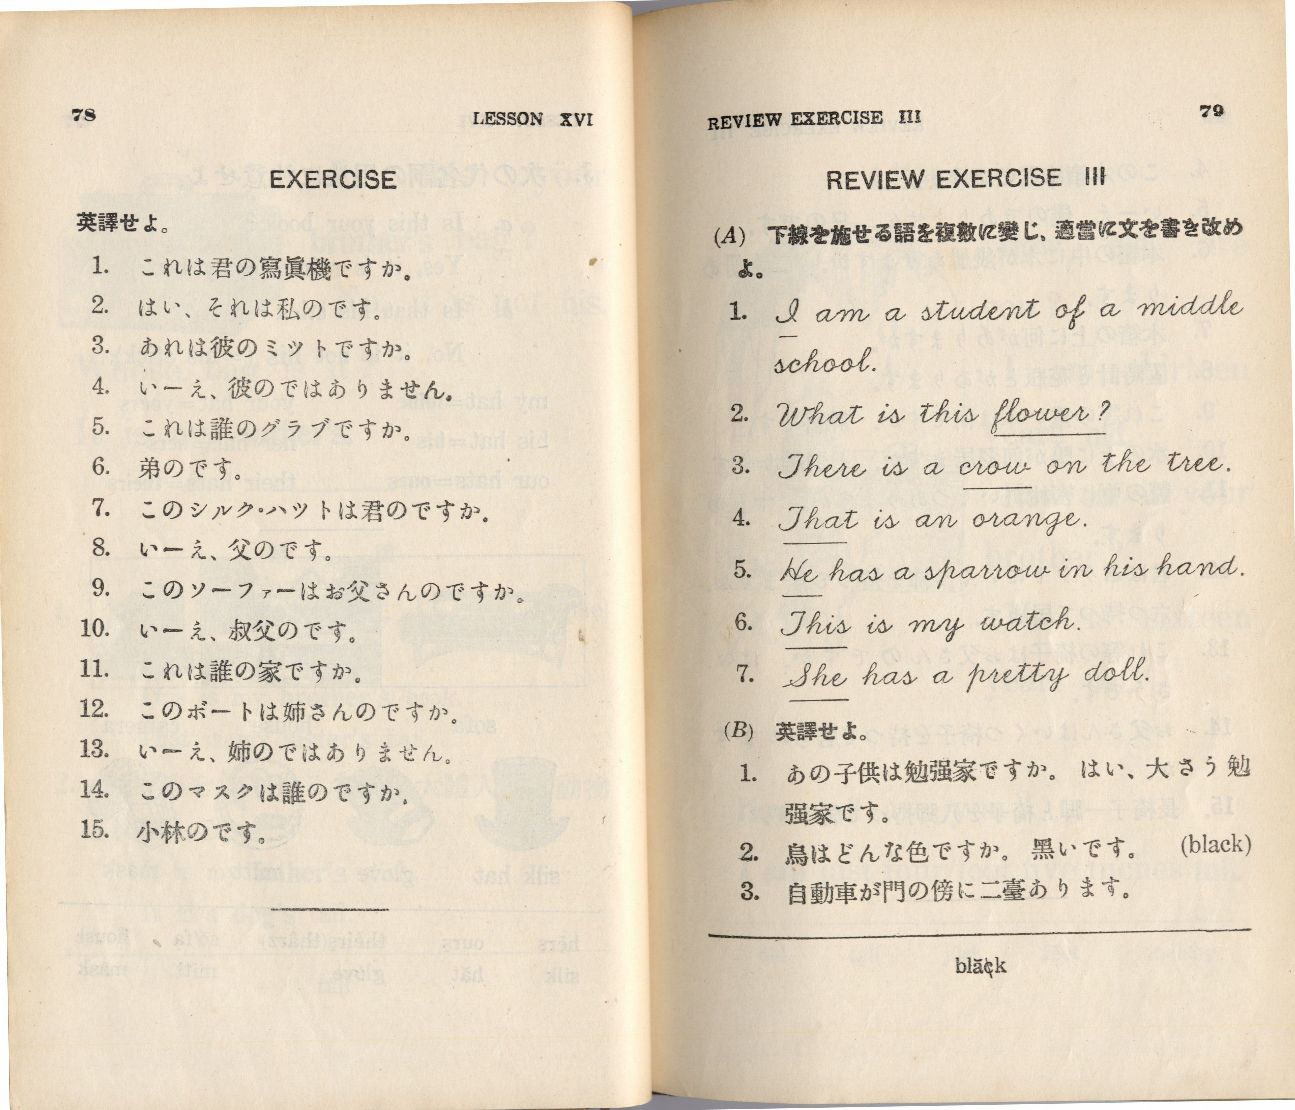 78
LESSON XVI
EXERCISE
英譯せよ。
1. これは君の寫眞機ですか。
2. はい、それは私のです。
3. あれは彼のミットですか。
4. いーえ、彼のではありません。
5. これは誰のグラブですか。
6. 弟のです。
7. このシルク・ハットは君のですか。
8. いーえ、父のです。
9. このソーファーはお父さんのですか。
10. いーえ、叔父のです。
11. これは誰の家ですか。
12. このボートは姉さんのですか。
13. いーえ、姉のではありません。
14. このマスクは誰のですか。
15. 小林のです。
REVIEW EXERCISE III
79
REVIEW EXERCISE III
(A) 下線を施せる語を複數に變じ、適當に文を書き改め
よ。
1. I am a student of a middle
school.
2. What is this flower?
3. There is a crow on the tree.
4. That is an orange.
5. He has a sparrow in his hand.
6. This is my watch.
7. She has a pretty doll.
(B) 英譯せよ。
1. あの子供は勉强家ですか。 はい、大さう勉
强家です。
2. 烏はどんな色ですか。 黑いです。 (black)
3. 自動車が門の傍に二臺あります。
blăck